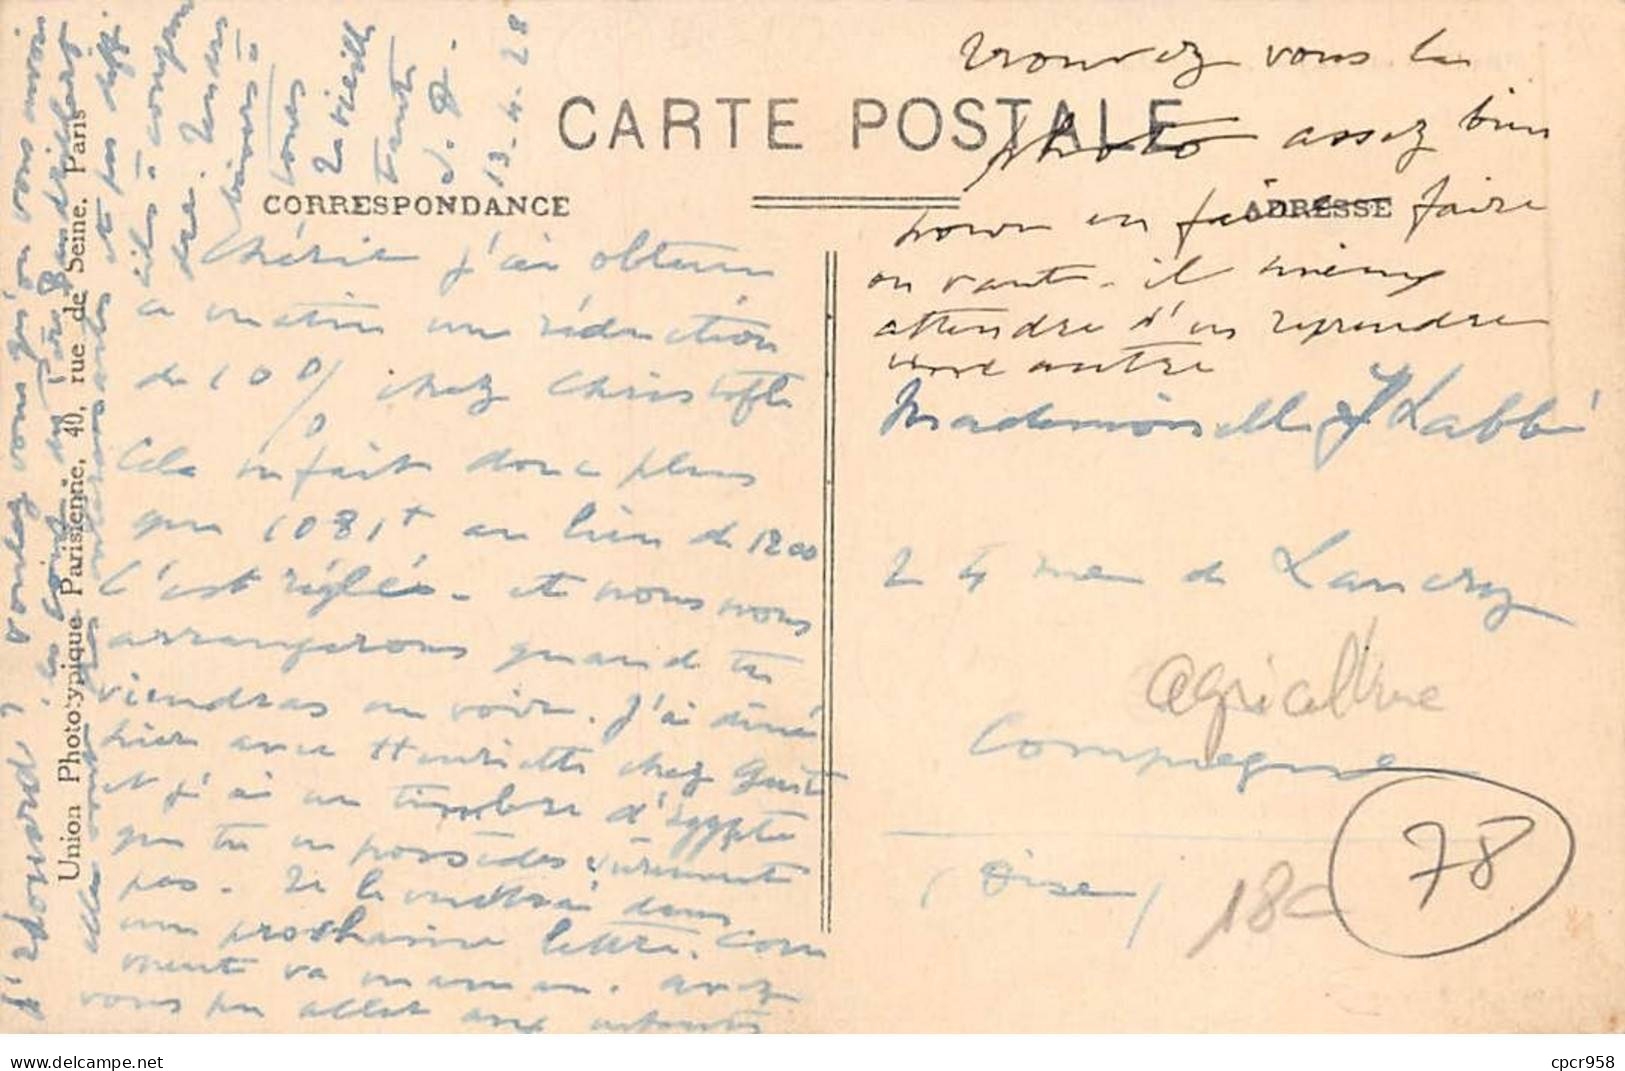 CARTE POSTALE
CORRESPONDANCE
ADRESSE
Union Photo-typique Parisienne, 40, rue de Seine. Paris
Chérie j'ai obtenu
ce matin une réduction
de 10 % chez Christofle
Cela en fait donc plus
que 1081+ au lieu de 1200
C'est réglée - et nous nous
arrangerons quand tu
viendras me voir. J'ai diné
hier avec Henriette chez
et j'ai un timbre d'Egypte
que tu ne possèdes sûrement
pas. Je le mettrai dans
une prochaine lettre. Com
ment va maman. avez
vous pu aller aux
d'Edouard ? voulez vous qu'on vous
Tendres
baisers =
Tones
La vieille
tante
J. D.
13-4-28
Trouvez vous la
photo assez bien
pour en faire
ou vaut-il mieux
attendre d'en reprendre
une autre
Mademoiselle J Labbé
24 rue de Lancry
agriculture
Compiegne
(Oise)
18c
78
cpcr958